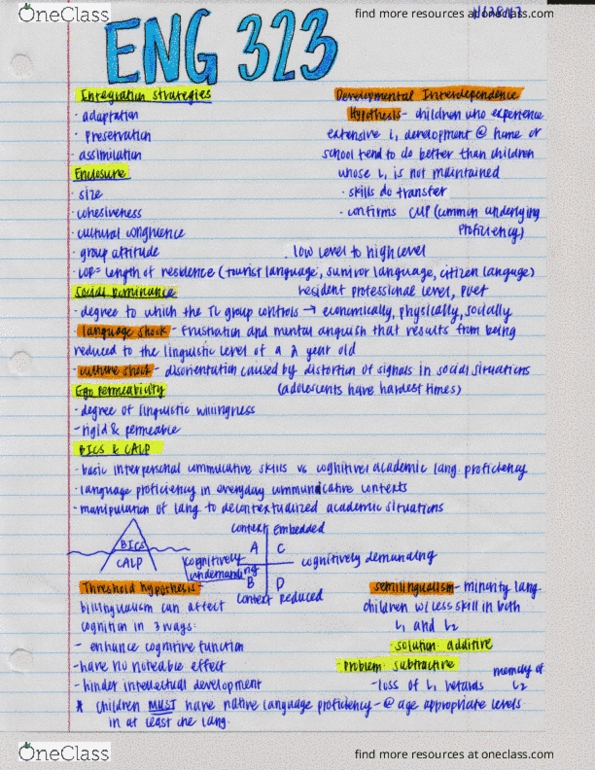 OneClass
find more resources at oneclass.com
ENG 323
Integration strategies
· adaptation
· preservation
· assimilation
Enclosure
· size
· cohesiveness
· cultural congruence
· group attitude
· LOR = length of residence (tourist language, survivor language, citizen language)
. low level to high level
resident professional level, poet
Developmental Interdependence
Hypothesis - children who experience
extensive L1 development @ home or
school tend to do better than children
whose L1 is not maintained
· skills do transfer
· confirms CUP (common underlying
proficiency)
Social dominance
· degree to which the TL group controls → economically, physically, socially
· language shock - frustration and mental anguish that results from being
reduced to the linguistic level of a 2 year old
· culture shock - disorientation caused by distortion of signals in social situations
(adolescents have hardest times)
Ego permeability
· degree of linguistic willingness
- rigid & permeable
BICS & CALP
· basic interpersonal communicative skills vs cognitive academic lang. proficiency
· language proficiency in everyday communicative contexts
· manipulation of lang to decontextualized academic situations
BICS
CALP
Context Embedded
A C
cognitively undemanding
cognitively demanding
B D
Context reduced
Threshold hypothesis -
bilingualism can affect
cognition in 3 ways:
- enhance cognitive function
- have no noteable effect
- hinder intellectual development
* children MUST have native language proficiency - @ age appropriate levels
in at least one lang.
semilingualism - minority lang.
children w/ less skill in both
L1 and L2
- solution: additive
- problem: subtractive
- loss of L1 retards
L2
OneClass
find more resources at oneclass.com